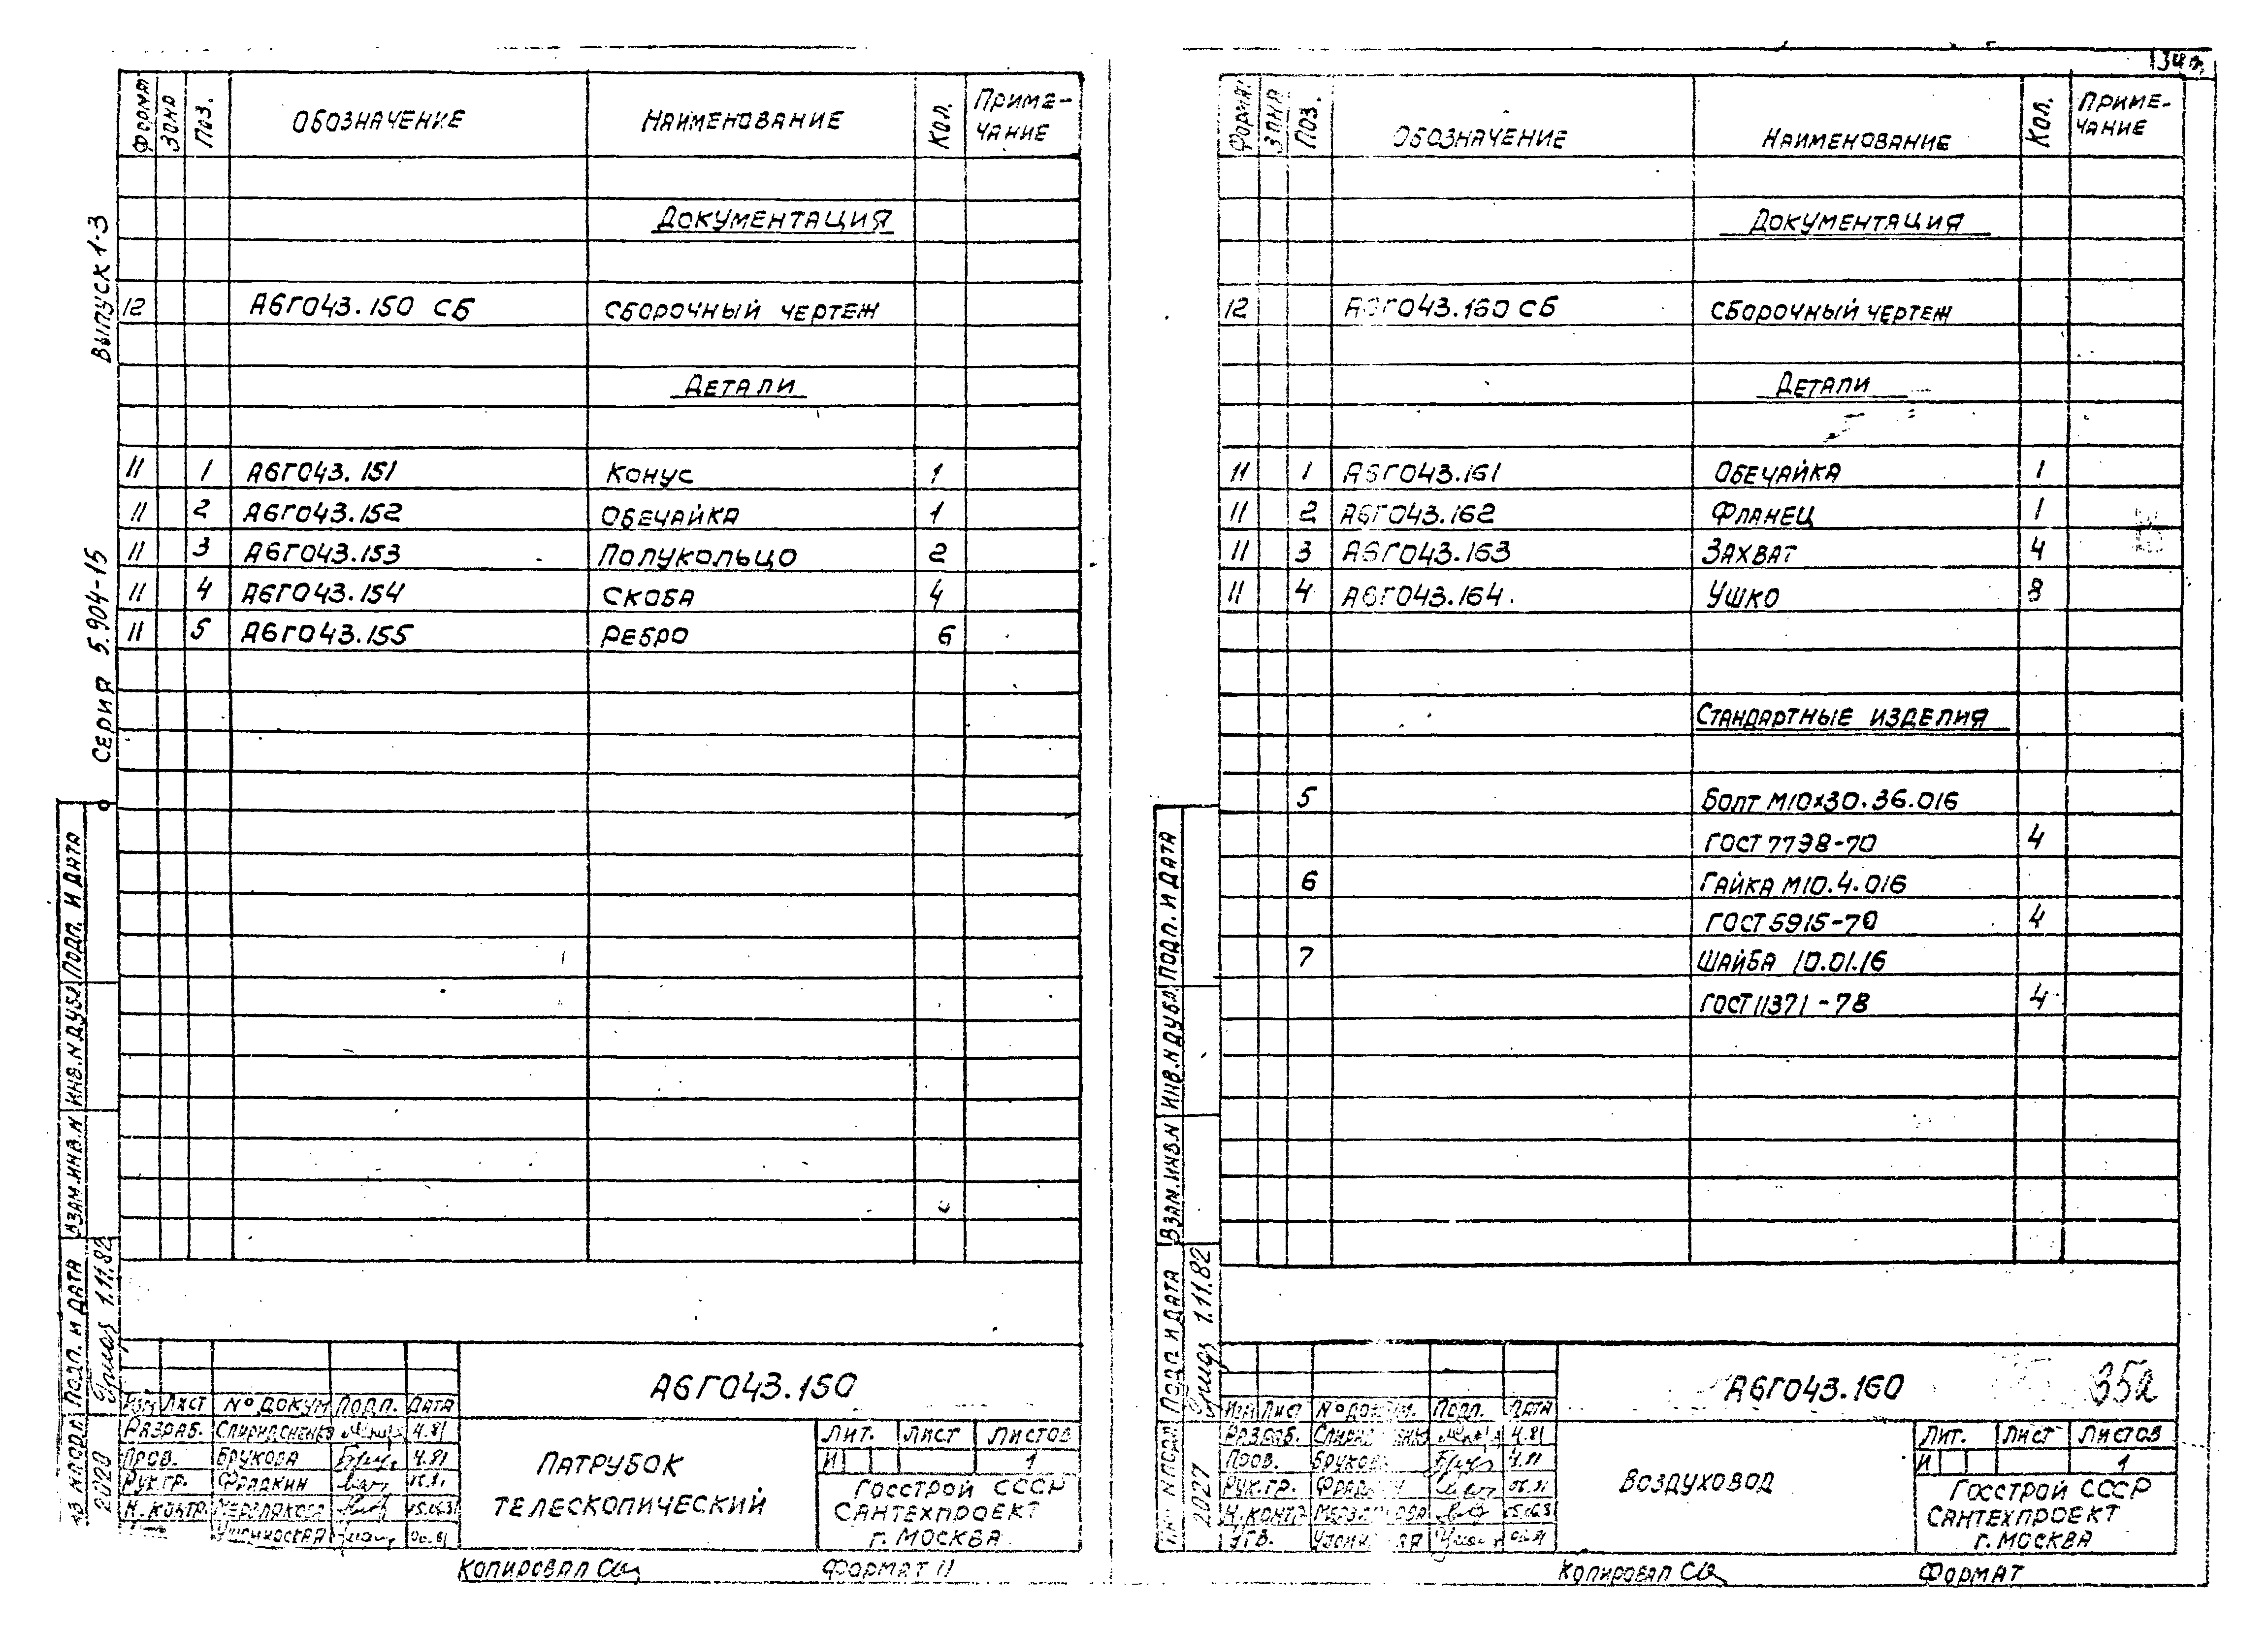 Выпуск 1-3
Серия 5.904-15
Формат Зона Поз. Обозначение Наименование Кол. Приме-
чание
Документация
12 А6Г043.150 СБ Сборочный чертеж
Детали
11 1 А6Г043.151 Конус 1
11 2 А6Г043.152 Обечайка 1
11 3 А6Г043.153 Полукольцо 2
11 4 А6Г043.154 Скоба 4
11 5 А6Г043.155 Ребро 6
Подп. и дата
Инв. N дубл
Взам. инв. N
Подп. и дата 1.11.82
А6Г043.150
Изм Лист № докум Подп. Дата
Разраб. 4.81
Пров. Брукова 4.81
Рук. гр. Фрадкин
Н. контр.
Патрубок
телескопический
Лит. Лист Листов
И 1
Госстрой СССР
Сантехпроект
г. Москва
Копировал
Формат 11
Формат Зона Поз. Обозначение Наименование Кол. Приме-
чание
Документация
12 А6Г043.160 СБ Сборочный чертеж
Детали
11 1 А6Г043.161 Обечайка 1
11 2 А6Г043.162 Фланец 1
11 3 А6Г043.163 Захват 4
11 4 А6Г043.164 Ушко 8
Стандартные изделия
5 Болт М10х30.36.016
ГОСТ 7798-70 4
6 Гайка М10.4.016
ГОСТ 5915-70 4
7 Шайба 10.01.16
ГОСТ 11371-78 4
Подп. и дата
Инв. N дубл.
Взам. инв. N
Подп. и дата 1.11.82
2027
А6Г043.160
35а
Изм Лист № докум. Подп. Дата
Разраб. 4.81
Пров. Брукова 4.81
Рук. гр. Фрадкин
Н. контр
Утв.
Воздуховод
Лит. Лист Листов
И 1
Госстрой СССР
Сантехпроект
г. Москва
Копировал
Формат